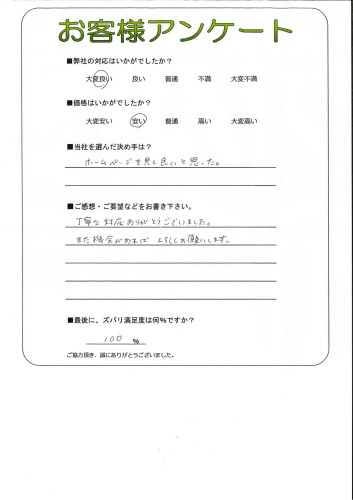 お客様アンケート
■弊社の対応はいかがでしたか？
大変良い 良い 普通 不満 大変不満
■価格はいかがでしたか？
大変安い 安い 普通 高い 大変高い
■当社を選んだ決め手は？
ホームページを見て良いと思った。
■ご感想・ご要望などをお書き下さい。
丁寧な対応ありがとうございました。
また機会があれば よろしくお願いします。
■最後に、ズバリ満足度は何%ですか？
100 %
ご協力頂き、誠にありがとうございました。